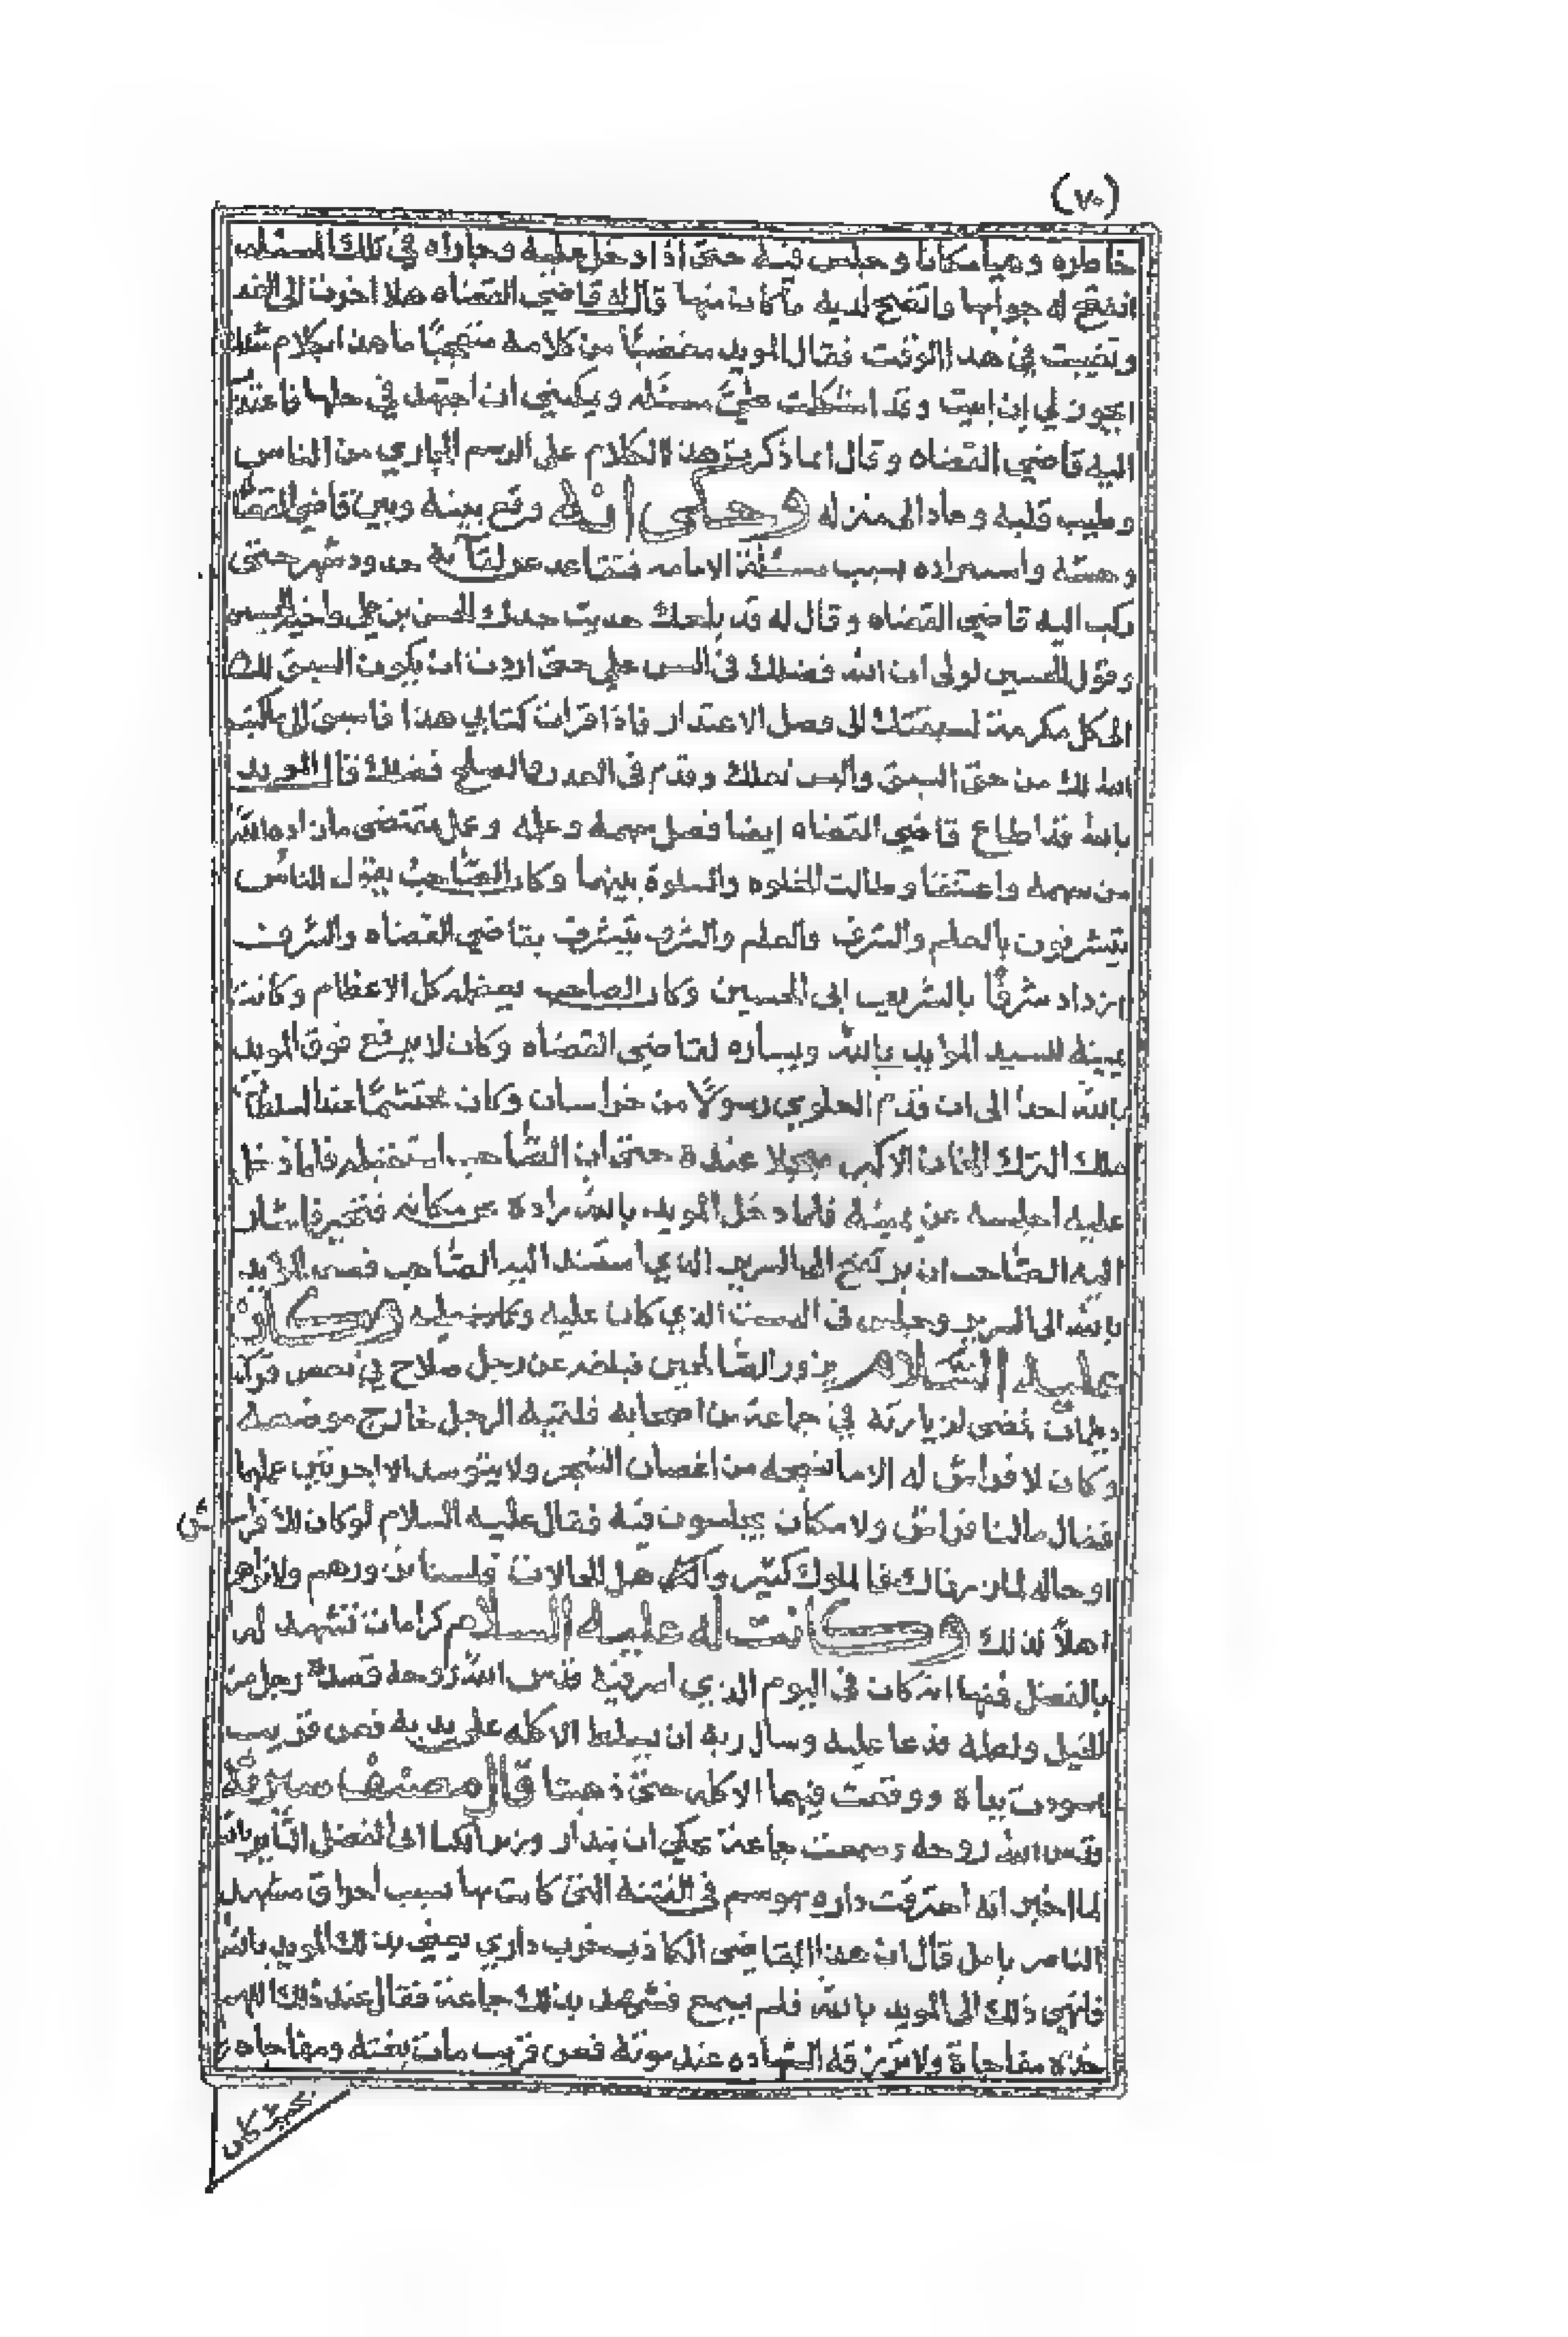 (٧٠)
خاطره وهيا مكانا وجلس فيه حتى اذا دخل عليه وجاراه في تلك المسئله
انفتح له جوابها واتضح لديه ما كان منها قال له قاضي القضاه هلا اخرت الى الغد
وتعبت في هذا الوقت فقال المويد مغضبًا من كلامه متعجبًا ما هذا بكلام مثلك
ايجوز لي ان ابيت وقد اشكلت علي مسئله ويمكنني ان اجتهد في حلها فاعتذر
اليه قاضي القضاه وقال انما ذكرت هذا الكلام على الرسم الجاري من الناس
وطيب قلبه وعاد الى منزله وحكى انه وقع بينه وبين قاضي القضا
وحشه واستزاده بسبب مسئلة الامامه فتقاعد عن لقائه حدود شهر حتى
ركب اليه قاضي القضاه وقال له قد بلغك حديث جدك الحسن بن علي واخيه الحسين
وقول الحسين لولا ان الله فضلك في السن علي حتى اردت ان يكون السبق لك
الى كل مكرمة لسبقتك الى فضل الاعتذار فاذا قرات كتابي هذا فاسبق الي ما كتب
الله لك من حق السبق والبس نعلك وتقدم في العذر والصلح فضلك قال المويد
بالله قد اطاع قاضي القضاه ايضا فضل سهمه وعلمه وعمل بمقتضى ما زاده الله
من سهمه واعتنقا وطالت الخلوه والسلوة بينهما وكان الصاحب يقول الناس
يتشرفون بالعلم والشرف والعلم والشرف يتشرف بقاضي القضاه والشرف
ازداد شرفًا بالشريف ابي الحسين وكان الصاحب يعظمه كل الاعظام وكانت
يمينه للسيد المويد بالله ويساره لقاضي القضاه وكان لا يرفع فوق المويد
بالله احدا الى ان قدم العلوي رسولًا من خراسان وكان محتشمًا عند السلطان
ملك الترك الخان الاكبر مبجلا عنده حتى ان الصاحب استقبله فلما دخل
عليه اجلسه عن يمينه فلما دخل المويد بالله راه عن مكانه فتحير فاشار
اليه الصاحب ان يرتفع الى السرير الذي استند اليه الصاحب فصعد المويد
بالله الى السرير وجلس في الدست الذي كان عليه وكان
عليه السلام يزور الصالحين فبلغه عن رجل صلاح في
فمضى لزيارته في جماعة من اصحابه فلقيه الرجل خارج موضعه
وكان لا فراش له الا ما اتخذه من اغصان الشجر ولا يتوسد الا
فقال ما لنا فراش ولا مكان يجلسون فيه فقال عليه السلام لو كان لك فراش
او حاله لما زرناك فالملوك كثير واهل الحالات ولسنا نزورهم ولا نراهم
اهلًا لذلك وكانت له عليه السلام كرامات تشهد له
بالفضل فمنها انه كان في اليوم الذي اسر فيه قدس الله روحه قصده رجل من
الجيل ولطمه فدعا عليه وسال ربه ان يسلط الاكله على يديه فعن قريب
اسودت يداه ووقعت فيهما الاكله حتى ذهبتا قال مصنف سيرته
قدس الله روحه وسمعت جماعة يحكي ان بندار
لما اخبر انه احترقت داره في الفتنة التي كانت بها بسبب احراق مشهد
الناصر بامل قال ان هذا القاضي الكاذب خرب داري يعني بذلك المويد بالله
فانهي ذلك الى المويد بالله فلم يسمع فشهد بذلك جماعة فقال عند ذلك اللهم
خذه مفاجاة ولا ترزقه الشهاده عند موته فعن قريب مات بغته ومفاجاه